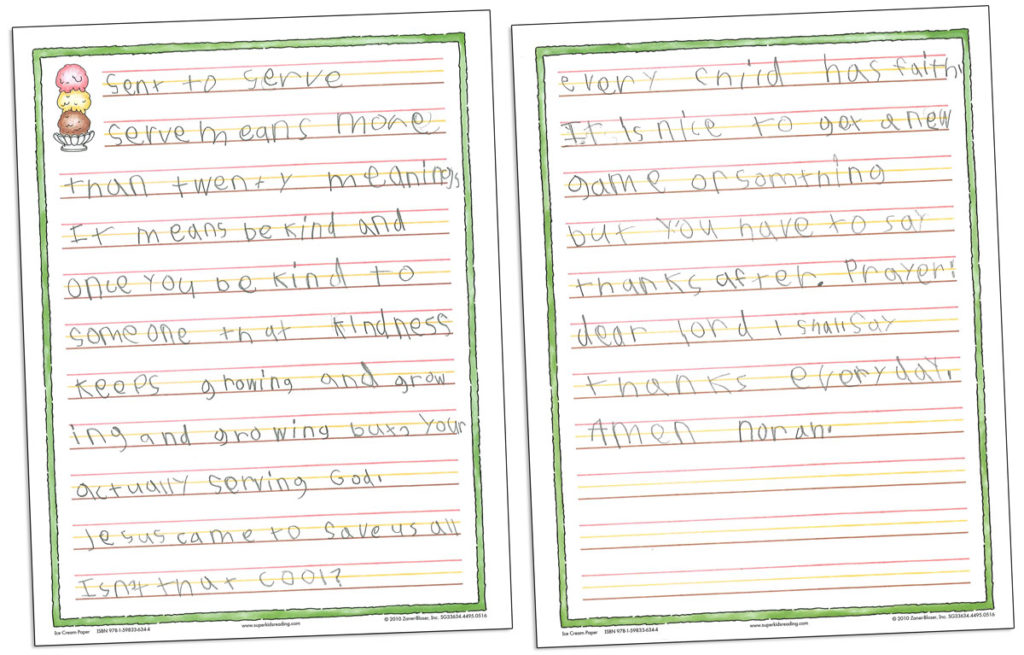 sent to serve
serve means more
than twenty meanings
It means be kind and
once you be kind to
someone that kindness
keeps growing and grow
ing and growing but, your
actually serving God.
Jesus came to save us all
Isn't that cool?
Ice Cream Paper ISBN 978-1-59833-634-4
www.superkidsreading.com
© 2010 Zaner-Bloser, Inc. SG33634.4495.0516
every child has faith,
It is nice to get a new
game or somthing
but you have to say
thanks after. Prayer:
dear lord I shall say
thanks everyday.
Amen norah.
Ice Cream Paper ISBN 978-1-59833-634-4
www.superkidsreading.com
© 2010 Zaner-Bloser, Inc. SG33634.4495.0516